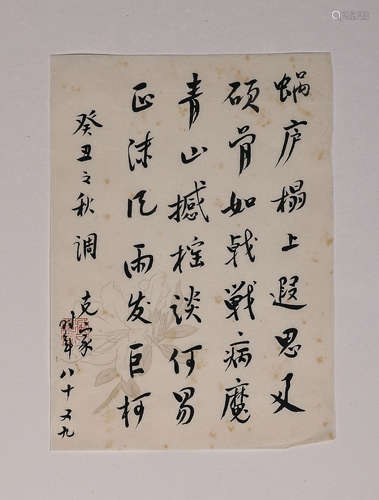 蜗庐榻上遐思
硕骨如戟戦病魔
青山撼摇谈何易
正沐风雨发巨柯
癸丑之秋调
克家
时年八十九